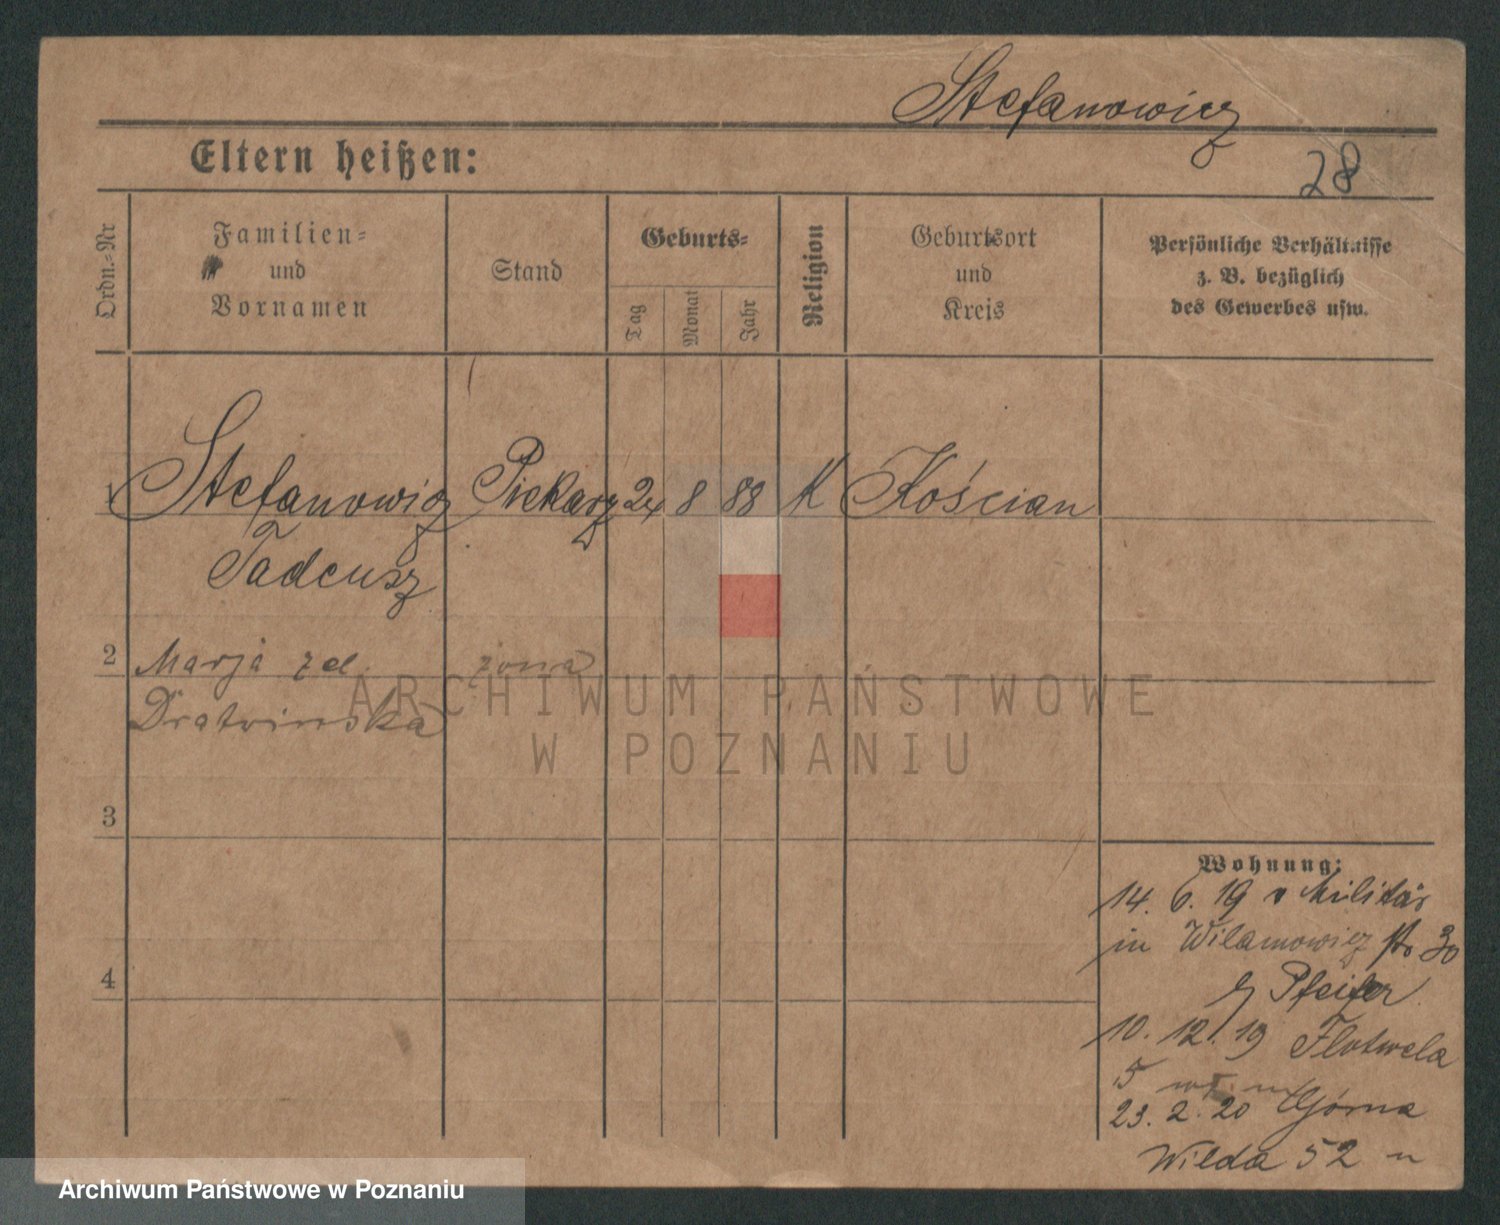 Stefanowicz
28
Eltern heißen:
Ordn.-Nr
Familien-
und
Vornamen
Stand
Geburts-
Tag
Monat
Jahr
Religion
Geburtsort
und
Kreis
Persönliche Verhältnisse
z. B. bezüglich
des Gewerbes usw.
1 Stefanowicz Piekarz 24 8 88 K Kościan
Tadeusz
2 Marja zd. żona
Dratwińska
3
4
Wohnung:
14. 6. 19 v Militär
in Wilamowicz str 30
Pfeifer
10. 12. 19 Flotwela
5
23. 2. 20 Górna
Wilda 52
ARCHIWUM PAŃSTWOWE
W POZNANIU
Archiwum Państwowe w Poznaniu